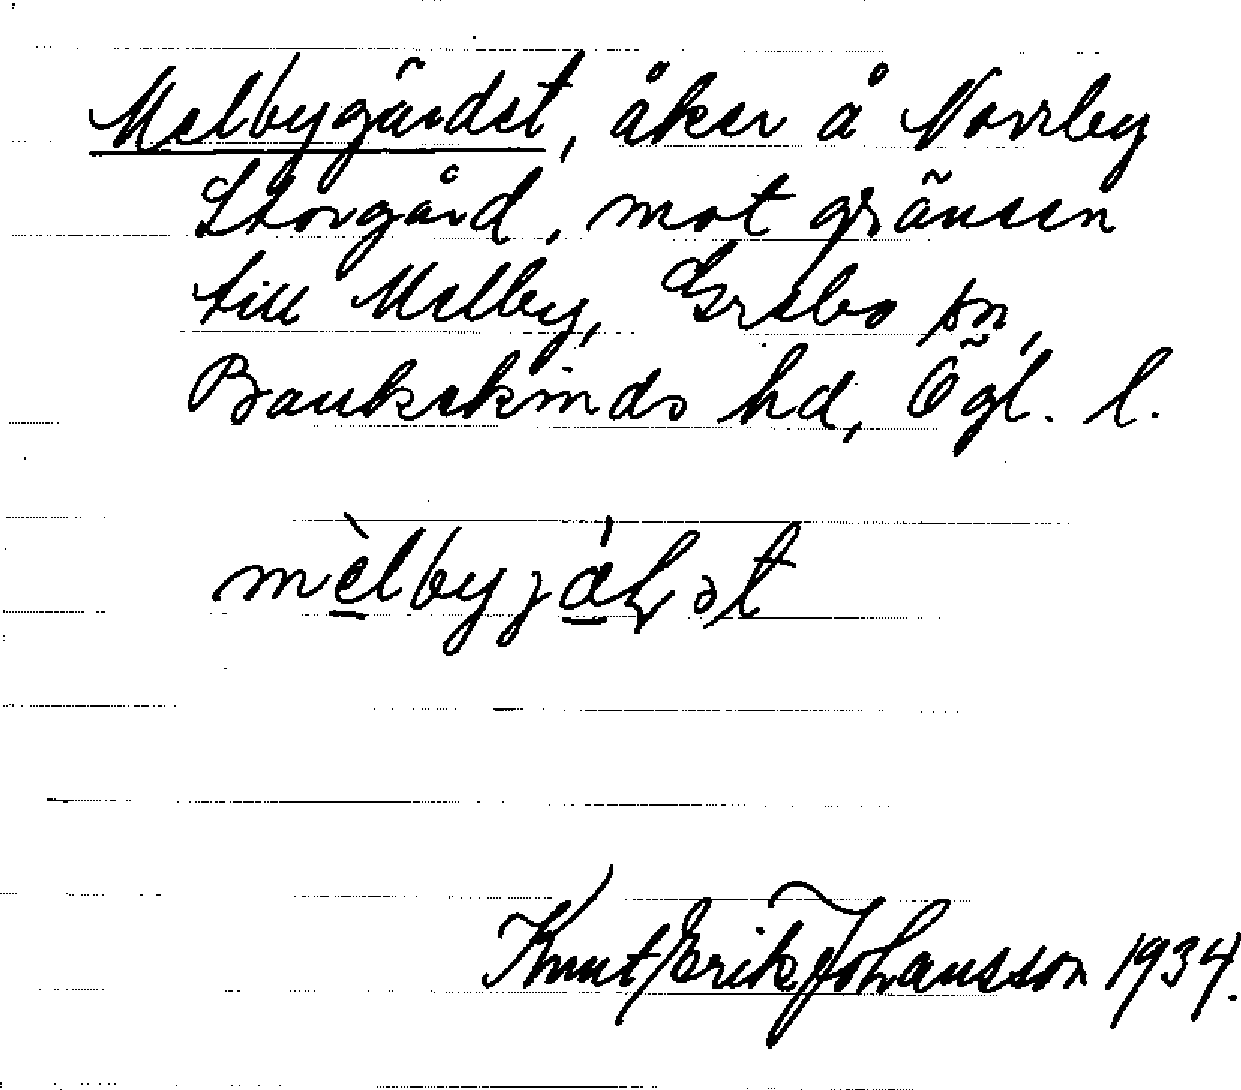 Melbygärdet, åker å Norrby
Storgård, mot gränsen
till Melby, Grebo sn,
Bankekinds hd, Ögl. l.
Knut Erik Johansson 1934.